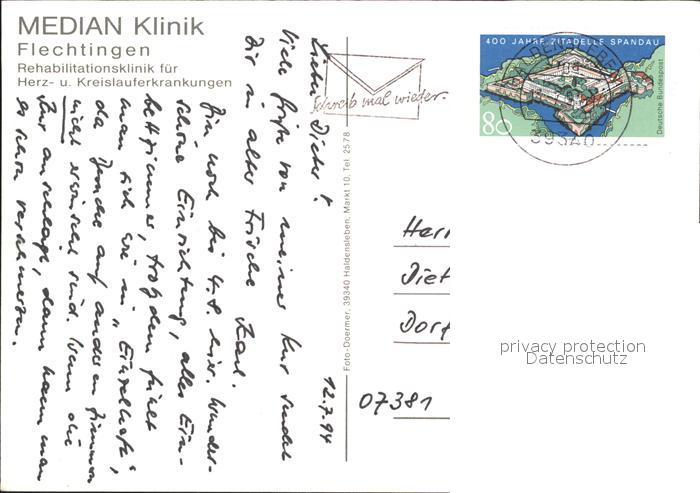 MEDIAN Klinik
Flechtingen
Rehabilitationsklinik für
Herz- u. Kreislauferkrankungen
Schreib mal wieder.
400 JAHRE ZITADELLE SPANDAU
Deutsche Bundespost
80
39340
12.7.94
Lieber Dieter!
Viele Grüße von meiner Kur sendet
Dir in alter Frische Karl.
Bin noch bis 4.8. hier. Wunder-
schöne Einrichtung, alles Ein-
bettzimmer, trotzdem fühlt
man sich wie in „Einzelhaft“,
da Besuche auf anderen Zimmern
nicht erwünscht sind. Wenn die
Kur anschlägt, dann kann man
es schon verschmerzen.
Foto-Doermer, 39340 Haldensleben, Markt 10, Tel. 2578
Herr
Diet
Dorf
07381
privacy protection
Datenschutz